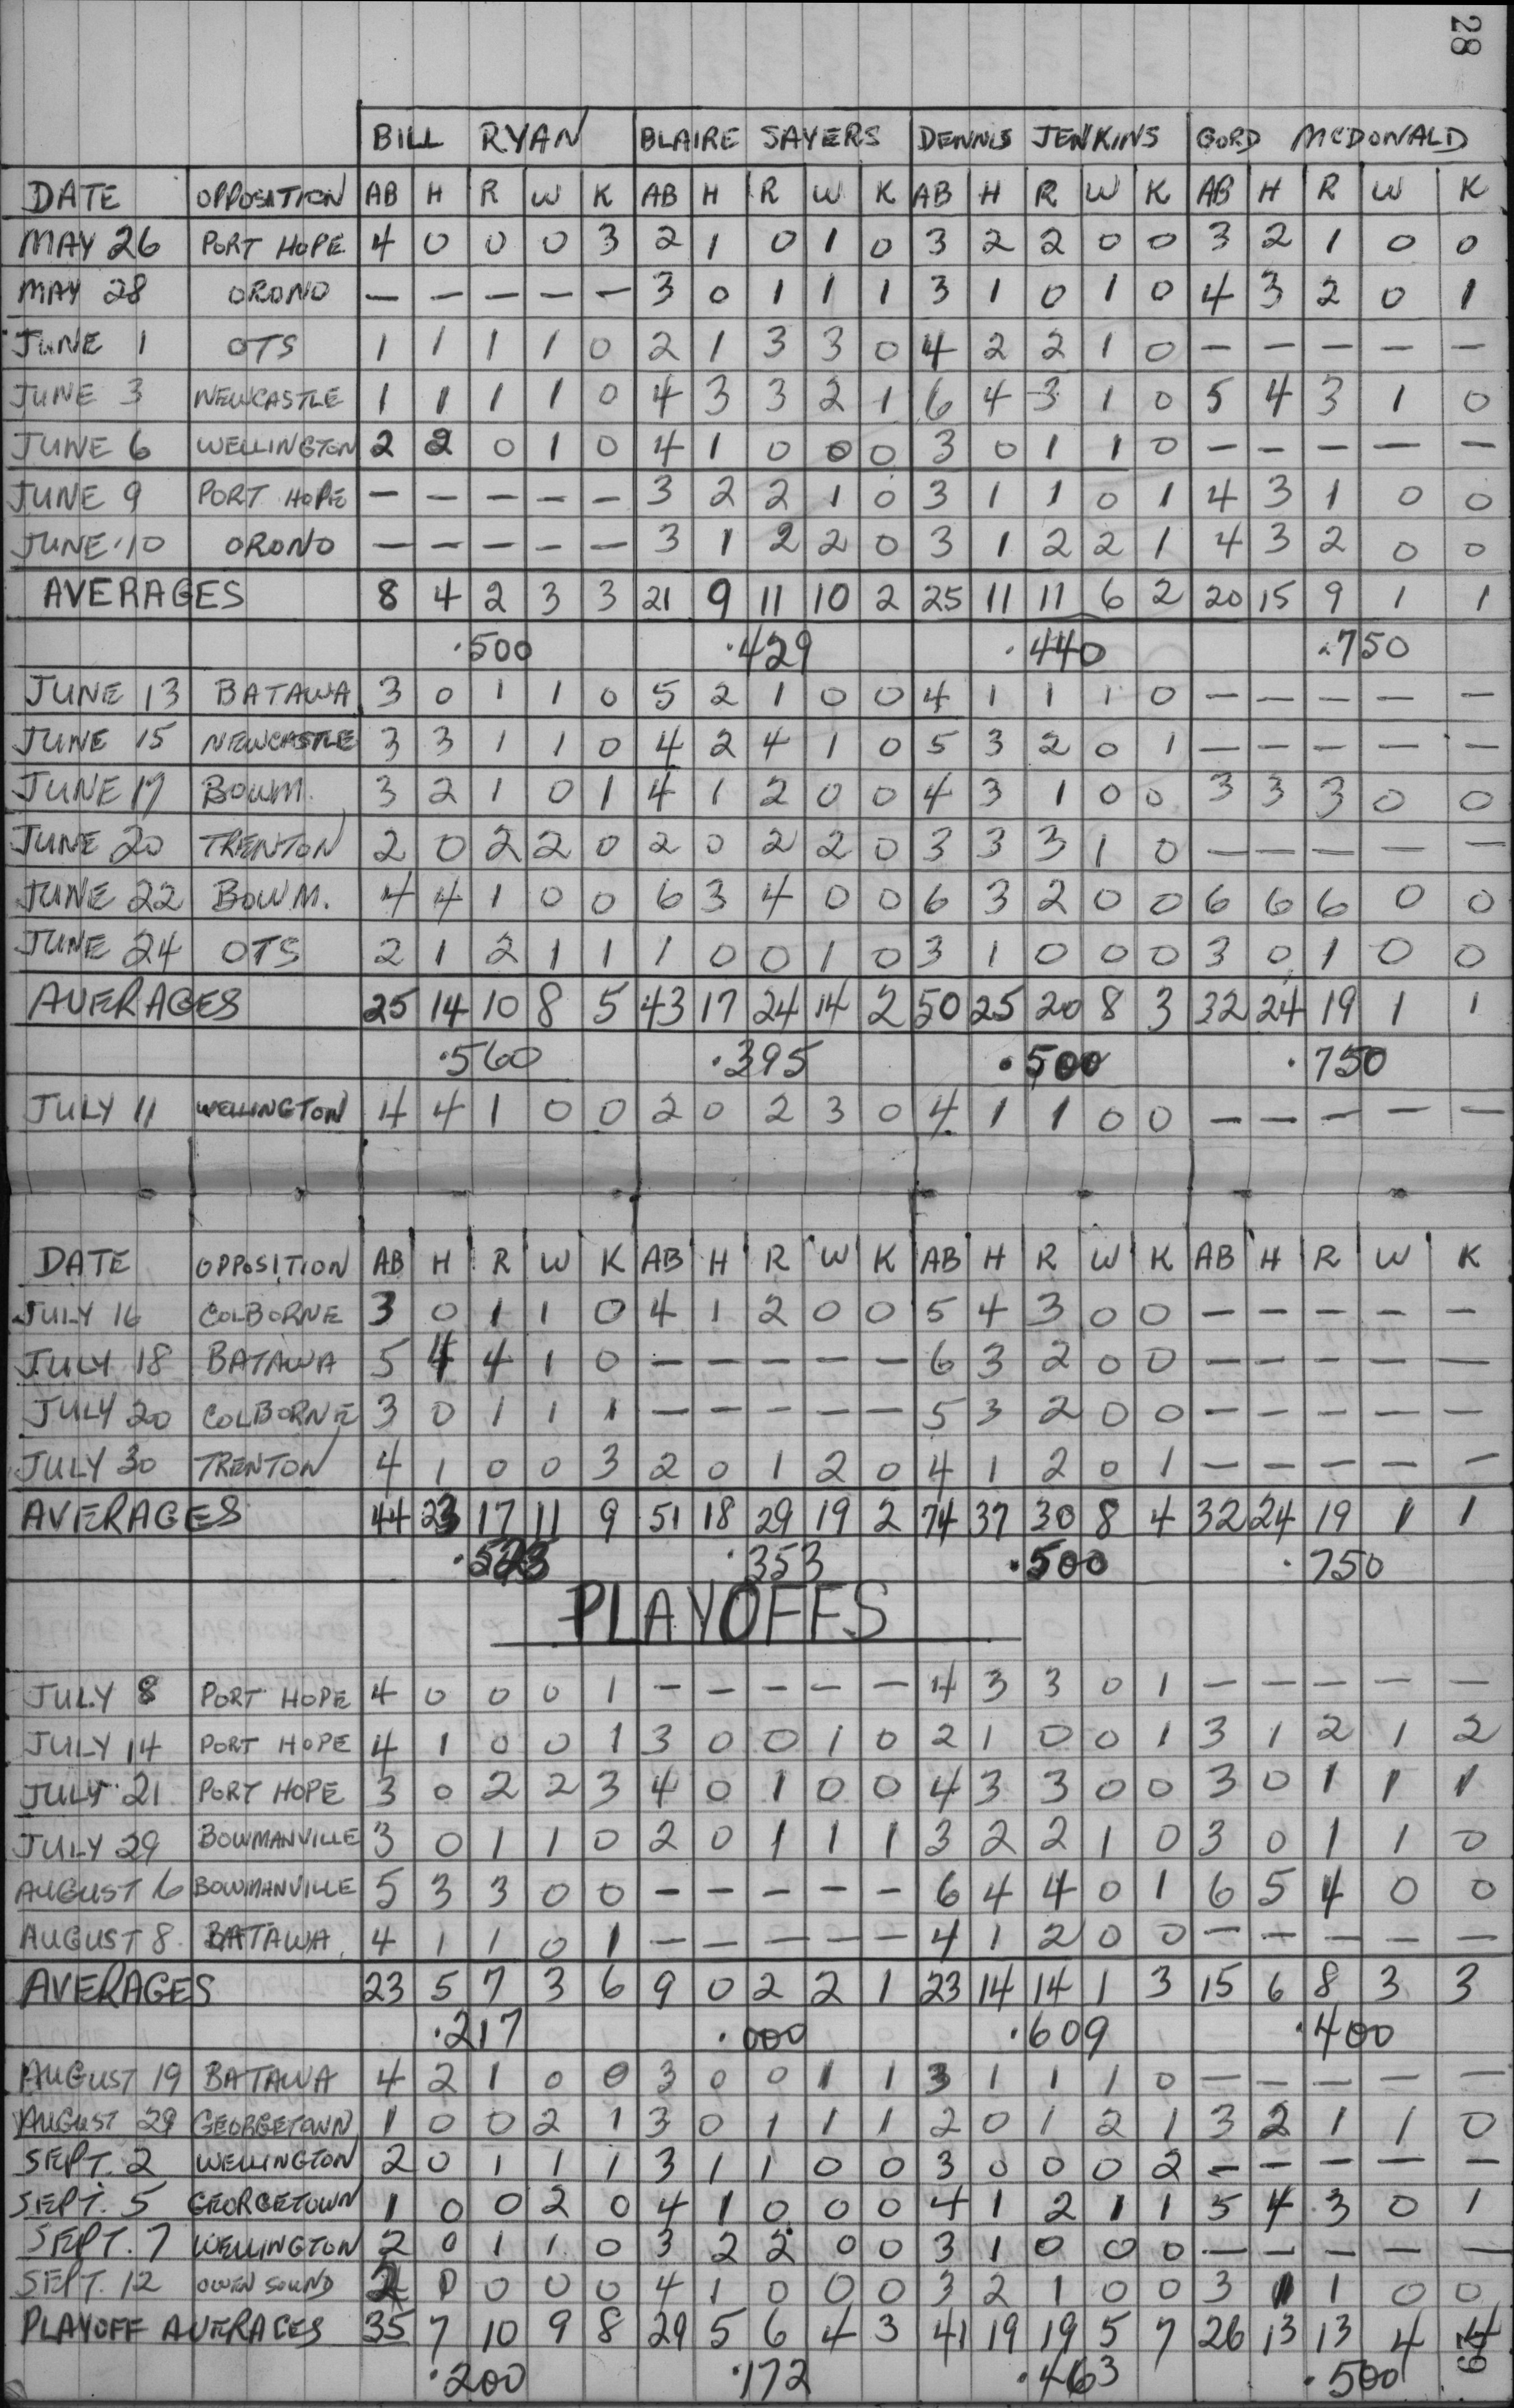 28
BILL RYAN BLAIRE SAYERS DENNIS JENKINS GORD MCDONALD
DATE OPPOSITION AB H R W K AB H R W K AB H R W K AB H R W K
MAY 26 PORT HOPE 4 0 0 0 3 2 1 0 1 0 3 2 2 0 0 3 2 1 0 0
MAY 28 ORONO — — — — — 3 0 1 1 1 3 1 0 1 0 4 3 2 0 1
JUNE 1 OTS 1 1 1 1 0 2 1 3 3 0 4 2 2 1 0 — — — — —
JUNE 3 NEWCASTLE 1 1 1 1 0 4 3 3 2 1 6 4 3 1 0 5 4 3 1 0
JUNE 6 WELLINGTON 2 2 0 1 0 4 1 0 0 0 3 0 1 1 0 — — — — —
JUNE 9 PORT HOPE — — — — — 3 2 2 1 0 3 1 1 0 1 4 3 1 0 0
JUNE 10 ORONO — — — — — 3 1 2 2 0 3 1 2 2 1 4 3 2 0 0
AVERAGES 8 4 2 3 3 21 9 11 10 2 25 11 11 6 2 20 15 9 1 1
.500 .429 .440 .750
JUNE 13 BATAWA 3 0 1 1 0 5 2 1 0 0 4 1 1 1 0 — — — — —
JUNE 15 NEWCASTLE 3 3 1 1 0 4 2 4 1 0 5 3 2 0 1 — — — — —
JUNE 17 BOWM. 3 2 1 0 1 4 1 2 0 0 4 3 1 0 0 3 3 3 0 0
JUNE 20 TRENTON 2 0 2 2 0 2 0 2 2 0 3 3 3 1 0 — — — — —
JUNE 22 BOWM. 4 4 1 0 0 6 3 4 0 0 6 3 2 0 0 6 6 6 0 0
JUNE 24 OTS 2 1 2 1 1 1 0 0 1 0 3 1 0 0 0 3 0 1 0 0
AVERAGES 25 14 10 8 5 43 17 24 14 2 50 25 20 8 3 32 24 19 1 1
.560 .395 .500 .750
JULY 11 WELLINGTON 4 4 1 0 0 2 0 2 3 0 4 1 1 0 0 — — — — —
DATE OPPOSITION AB H R W K AB H R W K AB H R W K AB H R W K
JULY 16 COLBORNE 3 0 1 1 0 4 1 2 0 0 5 4 3 0 0 — — — — —
JULY 18 BATAWA 5 4 4 1 0 — — — — — 6 3 2 0 0 — — — — —
JULY 20 COLBORNE 3 0 1 1 1 — — — — — 5 3 2 0 0 — — — — —
JULY 30 TRENTON 4 1 0 0 3 2 0 1 2 0 4 1 2 0 1 — — — — —
AVERAGES 44 23 17 11 9 51 18 29 19 2 74 37 30 8 4 32 24 19 1 1
.523 .353 .500 .750
PLAYOFFS
JULY 8 PORT HOPE 4 0 0 0 1 — — — — — 4 3 3 0 1 — — — — —
JULY 14 PORT HOPE 4 1 0 0 1 3 0 0 1 0 2 1 0 0 1 3 1 2 1 2
JULY 21 PORT HOPE 3 0 2 2 3 4 0 1 0 0 4 3 3 0 0 3 0 1 1 1
JULY 29 BOWMANVILLE 3 0 1 1 0 2 0 1 1 1 3 2 2 1 0 3 0 1 1 0
AUGUST 6 BOWMANVILLE 5 3 3 0 0 — — — — — 6 4 4 0 1 6 5 4 0 0
AUGUST 8 BATAWA 4 1 1 0 1 — — — — — 4 1 2 0 0 — — — — —
AVERAGES 23 5 7 3 6 9 0 2 2 1 23 14 14 1 3 15 6 8 3 3
.217 .000 .609 .400
AUGUST 19 BATAWA 4 2 1 0 0 3 0 0 1 1 3 1 1 1 0 — — — — —
AUGUST 29 GEORGETOWN 1 0 0 2 1 3 0 1 1 1 2 0 1 2 1 3 2 1 1 0
SEPT. 2 WELLINGTON 2 0 1 1 1 3 1 1 0 0 3 0 0 0 2 — — — — —
SEPT. 5 GEORGETOWN 1 0 0 2 0 4 1 0 0 0 4 1 2 1 1 5 4 3 0 1
SEPT. 7 WELLINGTON 2 0 1 1 0 3 2 2 0 0 3 1 0 0 0 — — — — —
SEPT. 12 OWEN SOUND 2 0 0 0 0 4 1 0 0 0 3 2 1 0 0 3 1 1 0 0
PLAYOFF AVERAGES 35 7 10 9 8 29 5 6 4 3 41 19 19 5 7 26 13 13 4 4
.200 .172 .463 .500
29